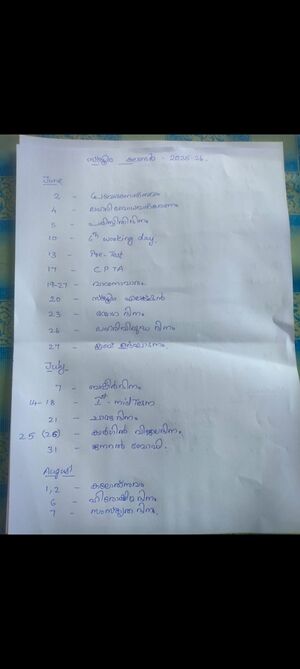 സ്കൂൾ കലണ്ടർ - 2025-26.
June
2 - പ്രവേശനോത്സവം
4 - ലഹരി ബോധവൽക്കരണം
5 - പരിസ്ഥിതിദിനം
10 - 6th working day.
13 - Pre-Test
17 - CPTA
19-27 - വായനാവാരം
20 - സ്കൂൾ ഇലക്ഷൻ
23 - യോഗ ദിനം
26 - ലഹരിവിരുദ്ധ ദിനം
27 - ക്ലബ് ഉദ്ഘാടനം
July
7 - ബഷീർദിനം
14-18 - Ist mid Term
21 - ചാന്ദ്രദിനം
25 (26) - കാർഗിൽ വിജയദിനം
31 - ജനറൽ ബോഡി.
August
1, 2 - കലോത്സവം
6 - ഹിരോഷിമ ദിനം
7 - സംസ്കൃത ദിനം.